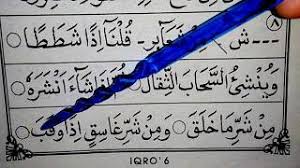 ٨
--- ش قُلْنَآ اِذًا شَطَطًا
وَيُنْشِئُ السَّحَابَ الثِّقَالَ ○ شَآءَ اَنْشَرَهٗ
مِنْ شَرِّ مَا خَلَقَ ○ وَمِنْ شَرِّ غَاسِقٍ اِذَا وَقَبَ
IQRO' 6